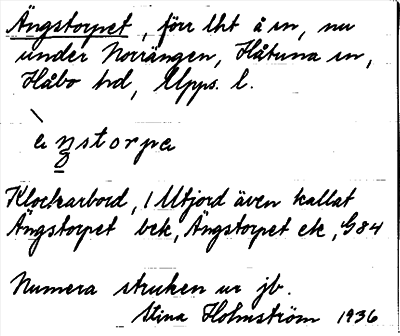 Ängstorpet, förr lht å sn, nu
under Norrängen, Håtuna sn,
Håbo hd, Upps. l.
àŋstorpa
Klockarbord, 1 Utjord även kallat
Ängstorpet bek, Ängstorpet ek, G84
Numera struken ur jb.
Stina Holmström 1936